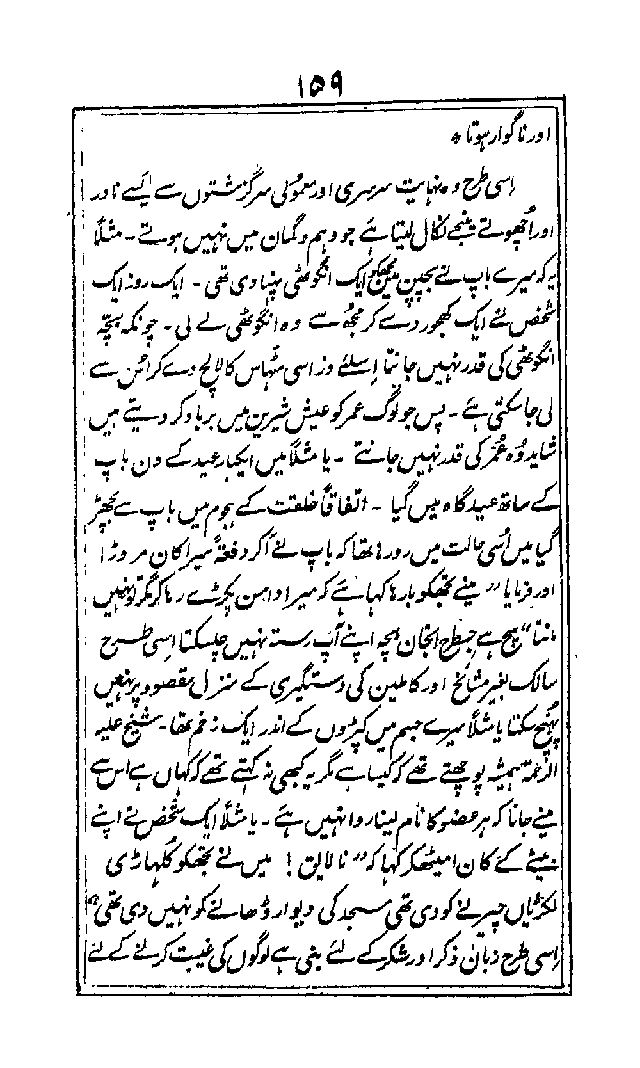 ۱۵۹
اور ناگوار ہوتا *
اِسی طرح وہ نہایت سرسری اور معمولی سرگزشتوں سے ایسے نادر
اور اچھوتے نتیجے نکال لیتا ہے جو وہم و گمان میں نہیں ہوتے - مثلاً
یہ کہ میرے باپ نے بچپن میں مجھکو ایک انگوٹھی پہنا دی تھی - ایک روز ایک
شخص نے ایک کھجور دے کر مجھ سے وہ انگوٹھی لے لی - چونکہ بچّہ
انگوٹھی کی قدر نہیں جانتا اِسلئے ذراسی مٹھاس کا لالچ دے کر اُس سے
لی جاسکتی ہے - پس جو لوگ عمر کو عیش شیریں میں برباد کر دیتے ہیں
شاید وُہ عُمر کی قدر نہیں جانتے - یا مثلاً میں ایکبار عید کے دن باپ
کے ساتھ عیدگاہ میں گیا - اتفاقاً خلقت کے ہجوم میں باپ سے بچھڑ
گیا میں اُسی حالت میں رو رہا تھا کہ باپ نے آکر دفعۃً میرا کان مروڑا
اور فرمایا "مینے تجھکو بارہا کہا ہے کہ میرا دامن پکڑے رہا کر مگر تو نہیں
مانتا" سچ ہے جسطرح انجان بچہ اپنے آپ رستہ نہیں چلسکتا اسی طرح
سالک بغیر مشائخ اور کاملین کی دستگیری کے منزل مقصود پر نہیں
پہنچ سکتا یا مثلاً میرے جسم میں کپڑوں کے اندر ایک زخم تھا - شیخ علیہ
الرحمۃ ہمیشہ پوچھتے تھے کہ کیسا ہے مگر یہ کبھی نہ کہتے تھے کہ کہاں ہے اس سے
مینے جانا کہ ہر عضو کا نام لینا روا نہیں ہے - یا مثلاً ایک شخص نے اپنے
بیٹے کے کان امیٹھکر کہا کہ "نالایق ! میں نے تجھکو کلہاڑی
لکڑیاں چیرنے کو دی تھی مسجد کی دیوار ڈھانے کو نہیں دی تھی"
اِسی طرح زبان ذکر اور شکر کے لئے بنی ہے لوگوں کی غیبت کرنے کے لئے